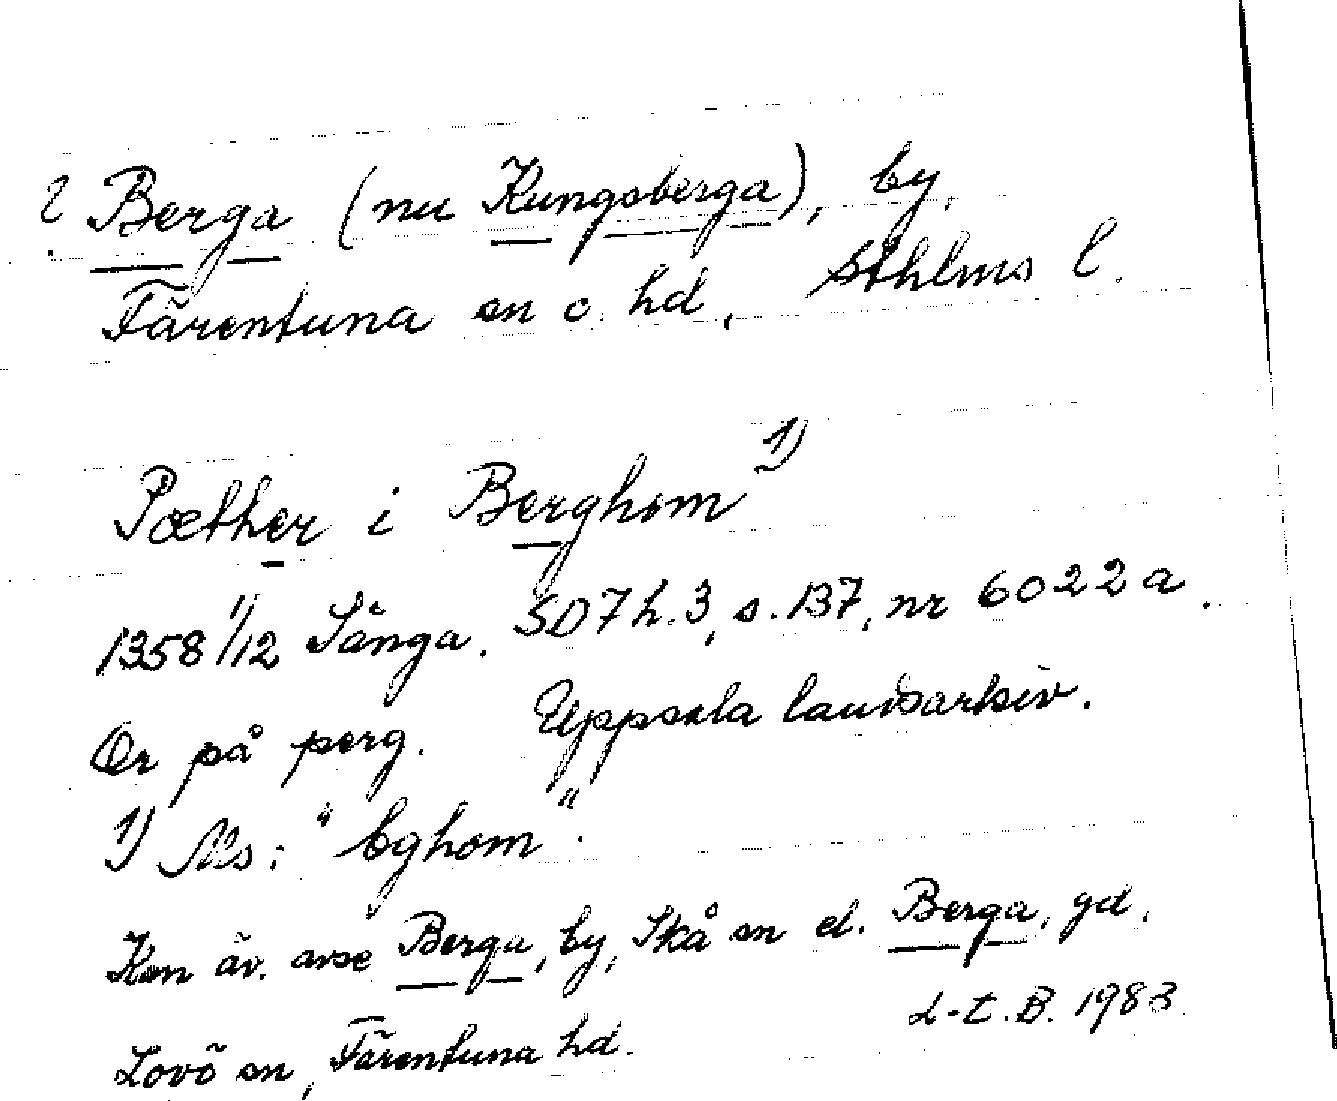 ? Berga (nu Kungsberga), by,
Färentuna sn o. hd, Sthlms l.
Pæther i Berghom 1)
1358 1/12 Sånga. SD 7 h. 3, s. 137, nr 6022 a.
Or på perg. Uppsala landsarkiv.
1) Ms: "bghom".
Kan äv. avse Berga, by, Skå sn el. Berga, gd,
Lovö sn, Färentuna hd. L-E.B. 1983